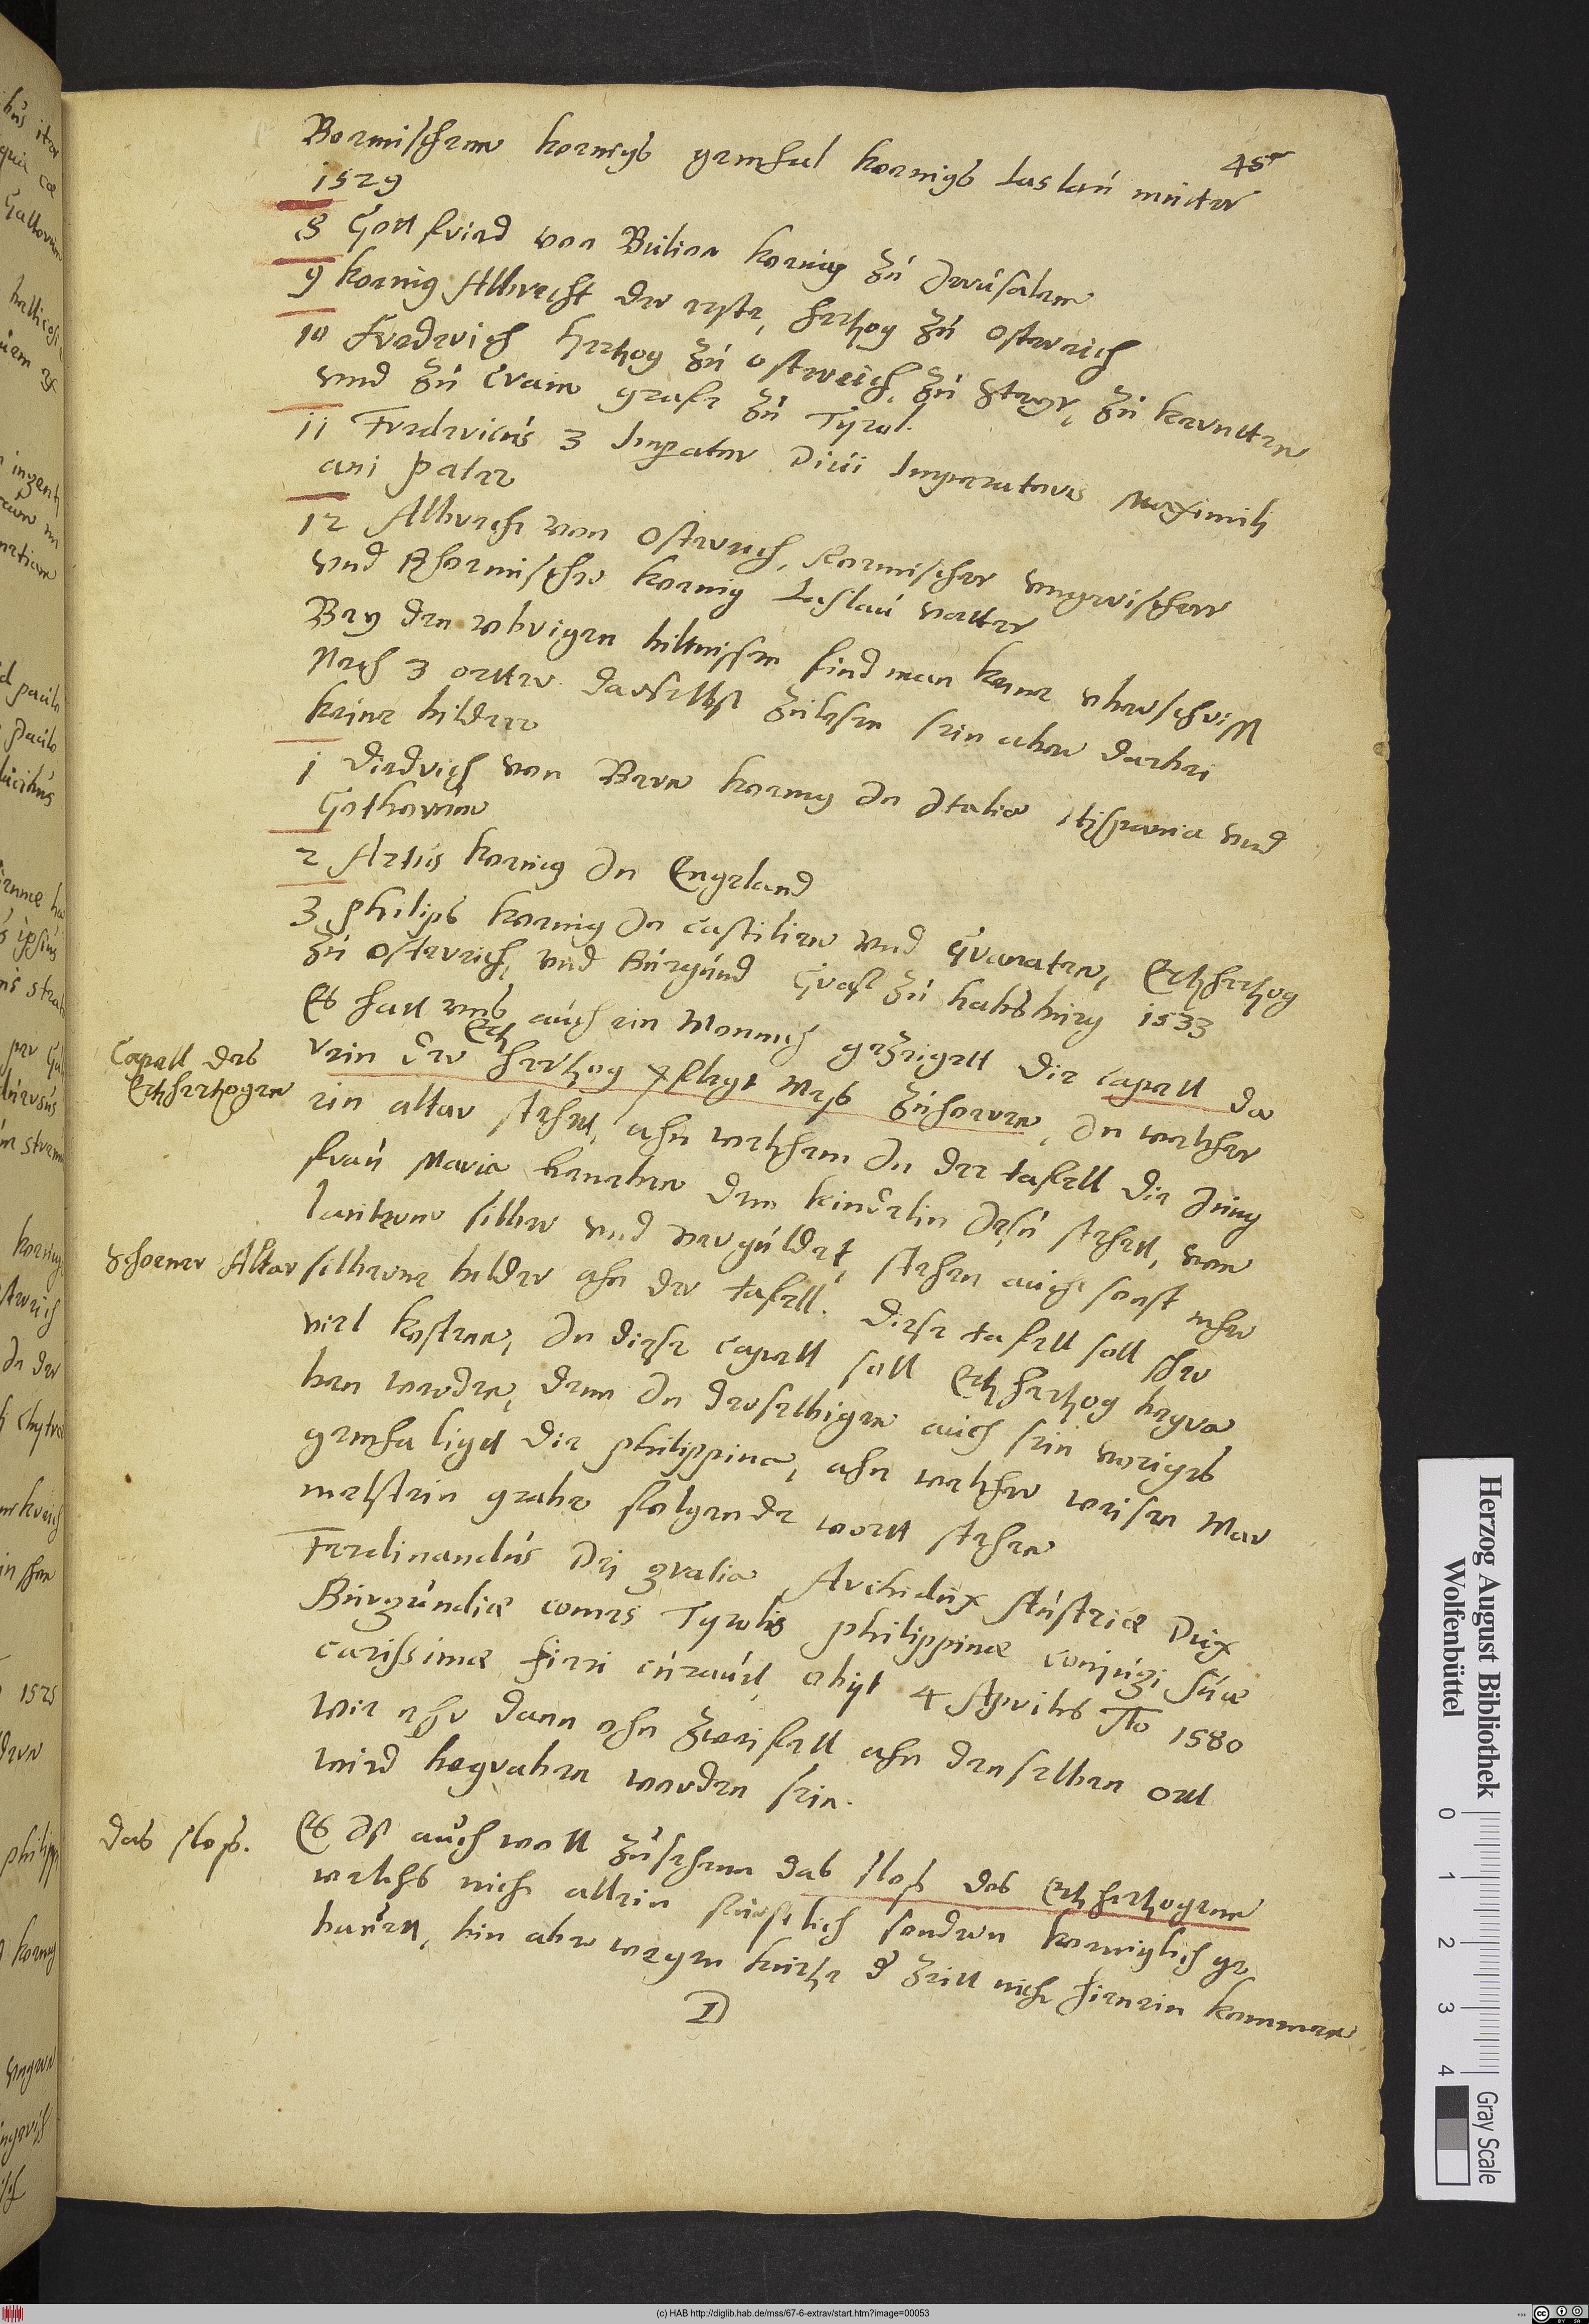 45r
Boemischenn koenigs gemhal koenigs Laslau mutter
1529
8 Gottfried von Bulion koenig zu Jerusalem
9 koenig Albrecht der erste, hertzog zu ostereich
10 Frederich hertzog zu ostreich, zu Steyr, zu kernetten
und zu Crain grafe zu Tyrol.
11 Fredericus 3 Imperator Divi Imperatoris Maximili
ani pater
12 Albrecht von Ostereich, Roemischer ungerischer
und Bhoemischer koenig Laslau vatter
Bey den ubrigen biltnissen find man keine uberschrifft
Noch 3 oertter daselbst zulesen sein aber darbei
keine bilder
1 Diedrich von Bern koenig In Italia Hispania und
Gothorum
2 Artus koenig In Engeland
3 Philips koenig In Castilien und Granaten, Ertzhertzog
zu Ostereich, und Burgund Graff zu habsburg 1533
Es hatt uns auch ein Monnich gezeigett die capell da
rin der Ertz hertzog pflegt Mess zuhoeren, In welcher
Capell des
Ertzhertzogen
ein altar stehet, ahn welchem In der tafell die Jung
frau Maria beneben dem kindelin Jesu stehett, von
lauterm silber und vergüldet, stehen auch sonst mher
Schoener Altar
silberne bilder ahn der tafell. Diese tafell soll sher
viel kosten, In diese capell soll Ertzhertzog begra
ben werden, denn In derselbigen auch sein voriges
gemhal liget die Philippina, ahn welcher weisen Mar
melstein grabe folgende wort stehen
Ferdinandus Dei gratia Archidux Austriæ Dux
Burgundiæ comes Tyrolis Philippinæ conjugi suæ
carissimæ fieri curavit obijt 4 Aprilis Ao 1580
Wie ehr dann ohn zweifell ahn denselben ort
wird begraben werden sein.
Das sloss.
Es Ist auch woll zusehen das sloss des Ertzhertzogenn
welchs nicht allein fürstlich sondern koeniglich ge
bauett, bin aber wegen kurtze der zeitt nicht hienein kommen